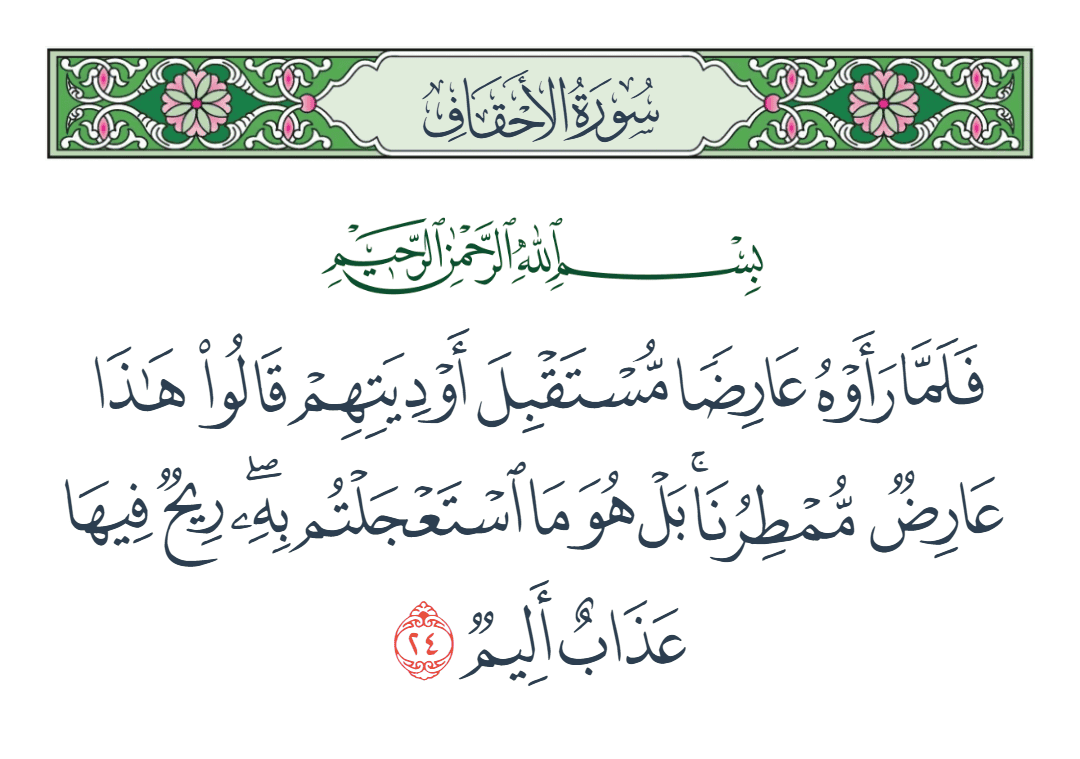 سُورَةُ الأَحْقَافِ
بِسْمِ ٱللَّهِ ٱلرَّحْمَٰنِ ٱلرَّحِيمِ
فَلَمَّا رَأَوْهُ عَارِضًا مُّسْتَقْبِلَ أَوْدِيَتِهِمْ قَالُوا۟ هَـٰذَا
عَارِضٌ مُّمْطِرُنَا ۚ بَلْ هُوَ مَا ٱسْتَعْجَلْتُم بِهِۦ ۖ رِيحٌ فِيهَا
عَذَابٌ أَلِيمٌ ٢٤